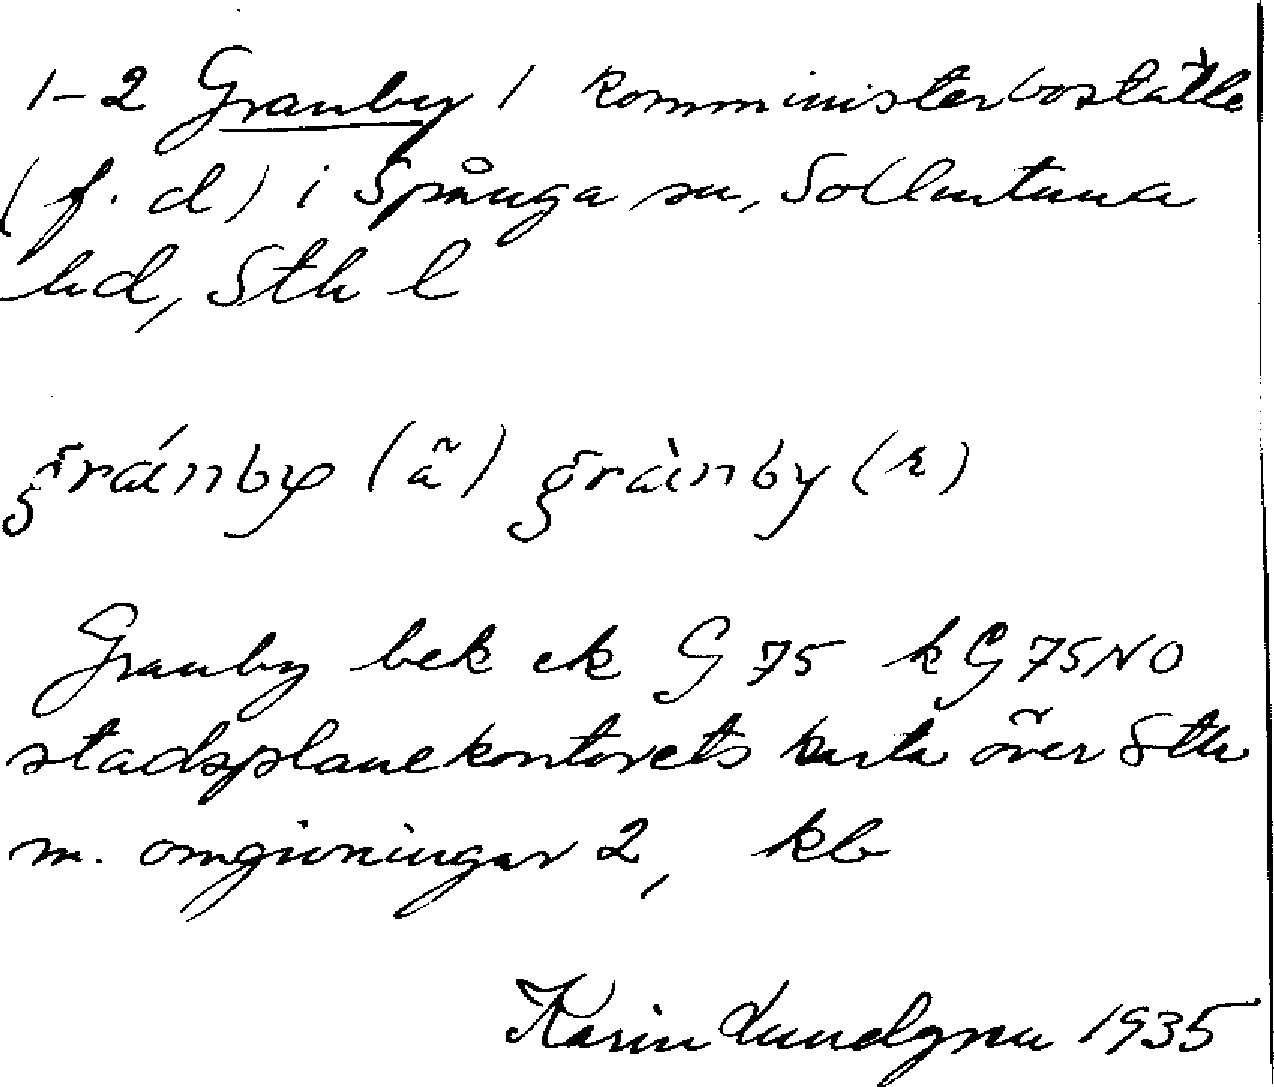 1-2 Granby 1 komministerboställe
(f. d) i Spånga sn, Sollentuna
hd, Sth l
gránby (ã) grànby (r)
Granby bek ek G 75 k G 75 NO
stadsplanekontorets karta över Sth
m. omgivningar 2, kb
Karin Lundgren 1935